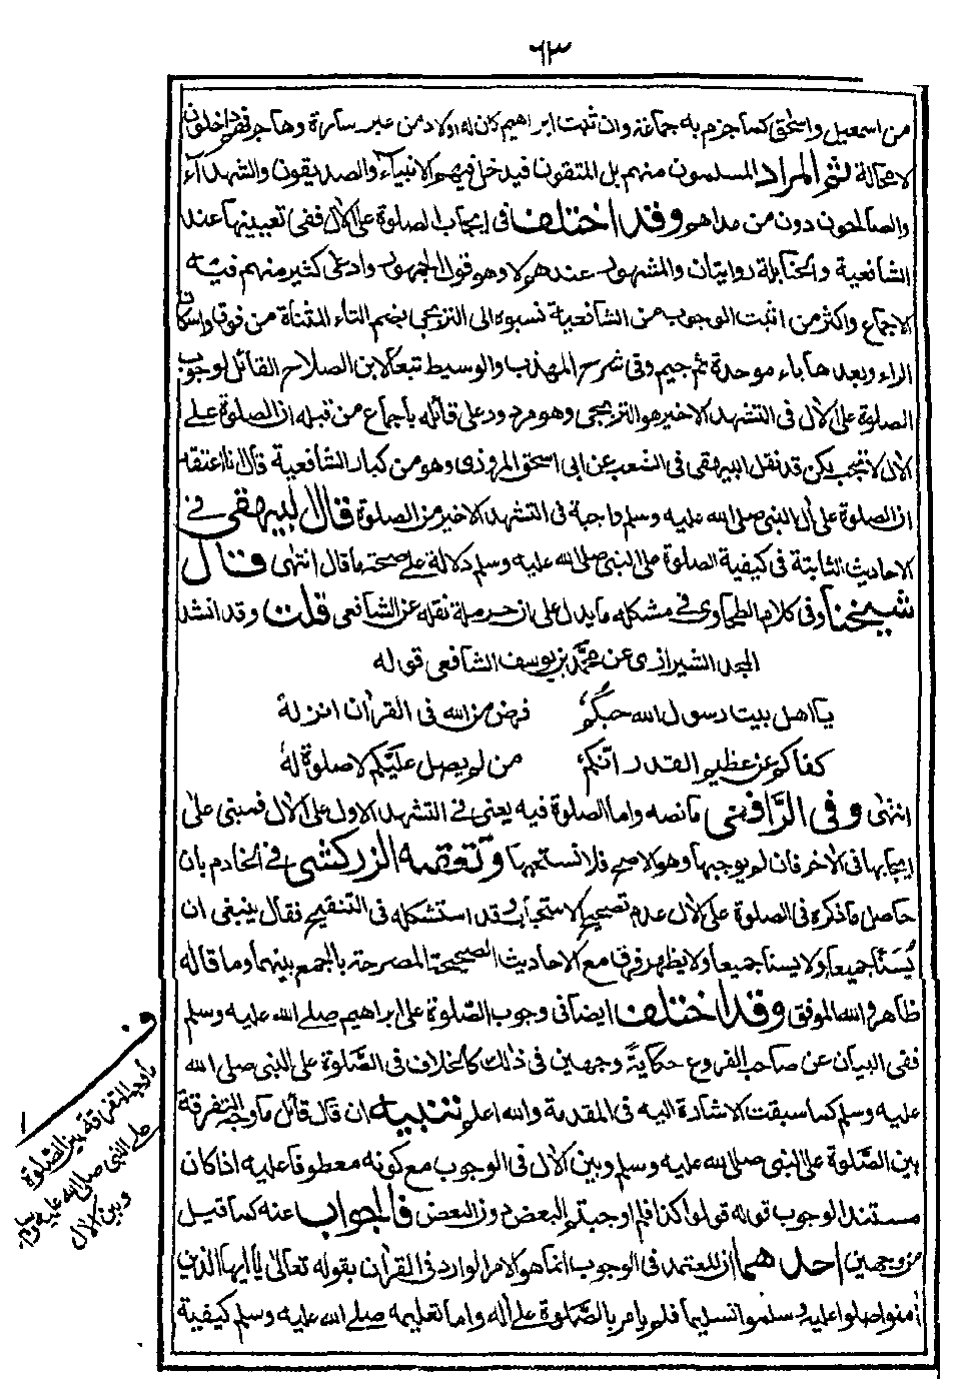 ٦٣
من اسمعيل واسحٰق كما جزم به جماعة وان ثبت ابراهيم كان له اولاد من غير سارة وهاجر فهم داخلون
لا محالة ثم المراد المسلمون منهم بل المتقون فيدخل فيهم الانبياء والصديقون والشهداء
والصالحون دون من عداهم وقد اختلف فى ايجاب الصلوة على الاٰل ففى تعيينها عند
الشافعية والحنابلة روايتان والمشهور عندهم لا وهو قول الجمهور وادعى كثير منهم فيه
الاجماع واكثر من اثبت الوجوب من الشافعية نسبوه الى التربجى بضم التاء المثناة من فوق واسكان
الراء وبعدها باء موحدة ثم جيم وفى شرح المهذب والوسيط تبعا لابن الصلاح القائل لوجوب
الصلوة على الاٰل فى التشهد الاخير هو التربجى وهو مردود على قائله باجماع من قبله ان الصلوة على
الاٰل لا تجب لكن قد نقل البيهقى فى الشعب عن ابى اسحق المروزى وهو من كبار الشافعية قال انا اعتقد
ان الصلوة على اٰل النبى صلى الله عليه وسلم واجبة فى التشهد الاخير من الصلوة قال البيهقى فى
الاحاديث الثابتة فى كيفية الصلوة على النبى صلى الله عليه وسلم دلالة على صحة ما قال انتهى قال
شيخنا وفى كلام الطحاوى فى مشكله ما يدل على ان حرملة نقله عن الشافعى قلت وقد انشد
المجد الشيرازى عن محمد بن يوسف الشافعى قوله
يا اهل بيت رسول الله حبكم فرض من الله فى القراٰن انزله
كفاكم عن عظيم القدر انكم من لم يصل عليكم لا صلوة له
انتهى وفى الرافعى ما نصه واما الصلوة فيه يعنى فى التشهد الاول على الاٰل فمبنى على
ايجابها فى الاٰخر فان لم يوجبها وهو الاصح فلا نستحبها وتعقبه الزركشى فى الخادم بان
حاصل ما ذكره فى الصلوة على الاٰل عدم تصحيح الاستحباب وقد استشكله فى التنقيح فقال ينبغى ان
يُسَنّا جميعا ولا يسنا جميعا ولا يظهر فرق مع الاحاديث الصحيحة المصرحة بالجمع بينهما وما قاله
ظاهر والله الموفق وقد اختلف ايضا فى وجوب الصلوة على ابراهيم صلى الله عليه وسلم
ففى البيان عن صاحب الفروع حكاية وجهين فى ذلك كالخلاف فى الصلوة على النبى صلى الله
عليه وسلم كما سبقت الاشارة اليه فى المقدمة والله اعلم تنبيه ان قال قائل ما وجه التفرقة
بين الصلوة على النبى صلى الله عليه وسلم وبين الاٰل فى الوجوب مع كونه معطوفا عليه اذا كان
مستند الوجوب قوله قولوا كذا فلم اوجبتم البعض دون البعض فالجواب عنه كما قيل
من وجهين احدهما ان المعتمد فى الوجوب انما هو الامر الوارد فى القراٰن بقوله تعالى يا ايها الذين
اٰمنوا صلوا عليه وسلموا تسليما فلم يامر بالصلوة على اٰله واما تعليمه صلى الله عليه وسلم كيفية
ف
ما وجه التفرقة بين الصلوة
على النبى صلى الله عليه وسلم
وبين الاٰل